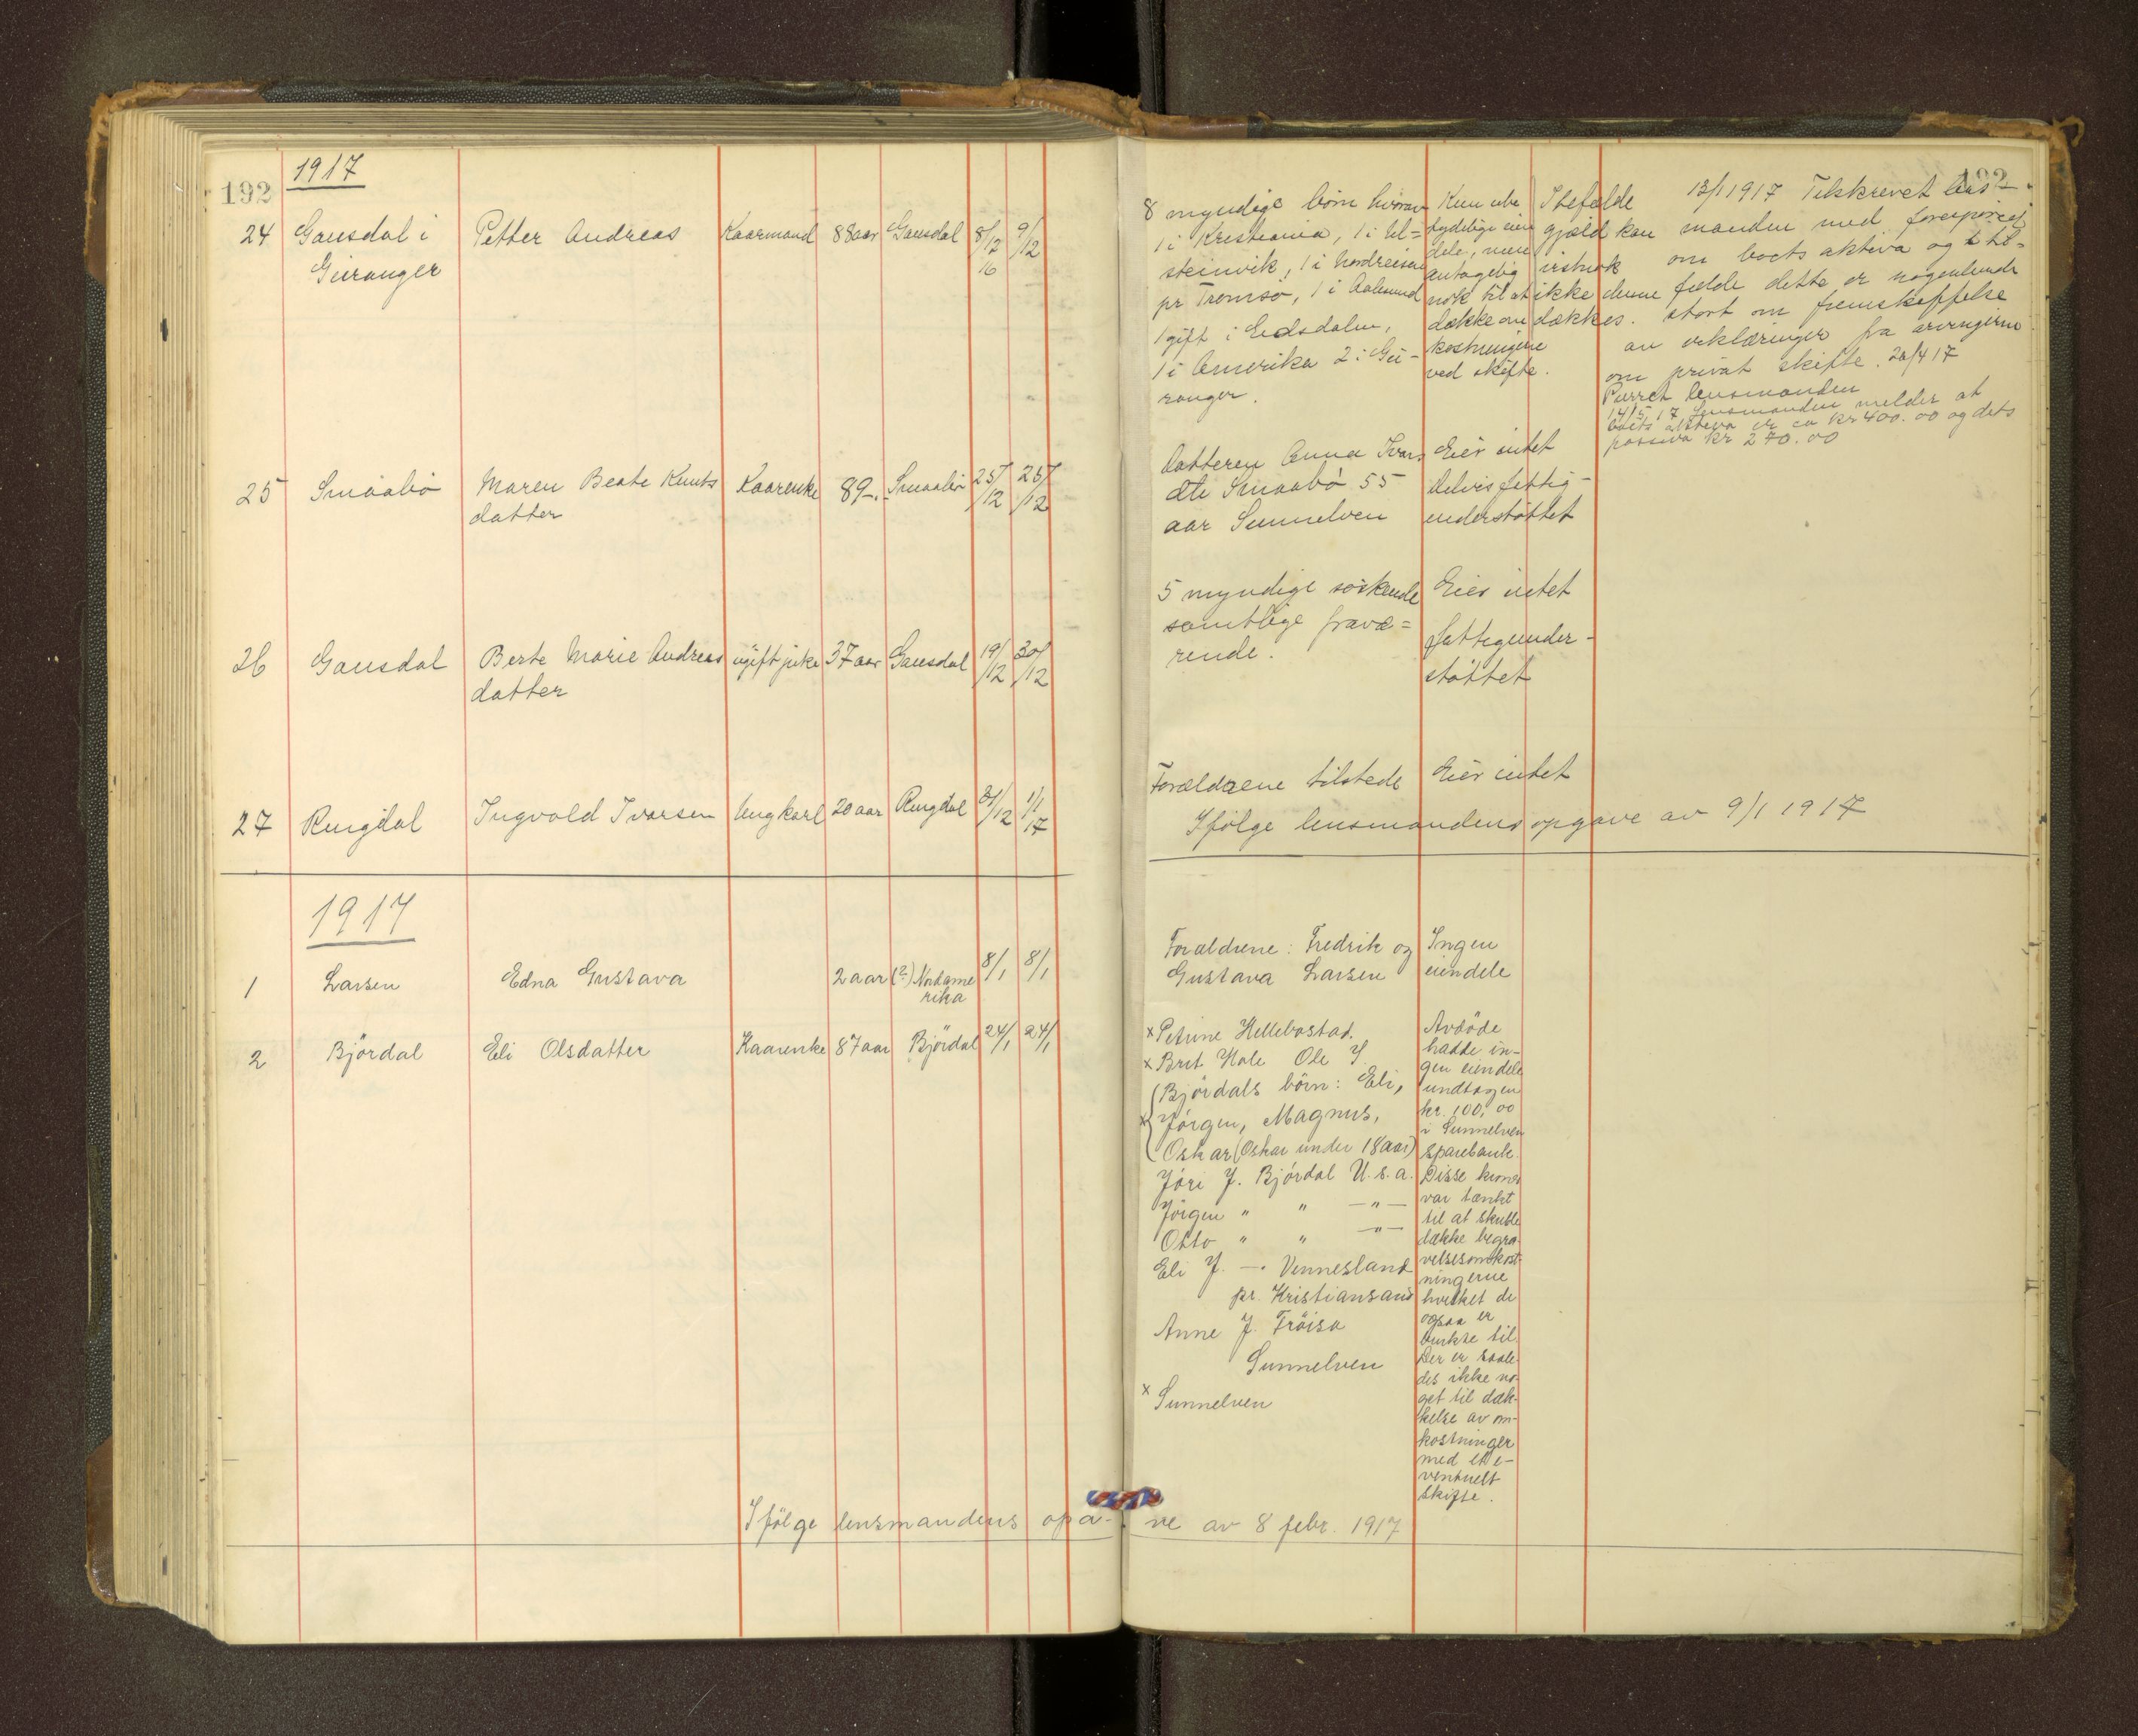 192
1917
24 Gausdal i Petter Andreas Kaarmand 88 aar Gausdal 8/12 9/12
Geiranger 16
25 Smaabø Maren Beate Knuts Kaarenke 89 –"– Smaabø 25/12 25/12
datter
26 Gausdal Berte Marie Andreas ugift pike 37 aar Gausdal 19/12 30/12
datter
27 Ringdal Ingvald Ivarsen Ungkarl 20 aar Ringdal 21/12 1/1 17
1917
1 Larsen Edna Gustava 2 aar (?) Nordame 8/1 8/1
rika
2 Bjørdal Eli Olsdatter Kaarenke 87 aar Bjørdal 24/1 24/1
Ifølge lensmandens opga-
192
8 myndige børn hvorav
1 i Kristiania, 1 i Ul=
steinvik, 1 i Nordreisen
pr Tromsø, 1 i Aalesund
1 gift i Eidsdalen,
1 i Amerika 2 i Gei-
ranger.
Kun ube
tydelige eien
dele, men
antagelig
nok til at
dække om
kostningene
ved skifte.
I tilfælde
gjæld kan
ikke denne
dækkes.
13/1 1917 Tilskrevet lens-
manden med forespørsel
om boets aktiva og til-
fælde dette er nogenlunde
stort om fremskaffelse
av erklæringer fra arvingerne
om privat skifte. 20/4 17
Purret lensmanden
14/5 17 Lensmanden melder at
boets aktiva er ca kr 400.00 og dets
passiva kr 270.00
Datteren Anna Ivars
dtr Smaabø 55
aar Sunnelven
Eier intet
delvis fattig-
understøttet
5 myndige søskende
samtlige fravæ=
rende.
Eier intet
fattigunder-
støttet
Forældrene tilstede Eier intet
Ifølge lensmandens opgave av 9/1 1917
Forældrene: Fredrik og
Gustava Larsen
Ingen
eiendele
x Petrine Hellebostad.
x Brit Hole Ole J.
Bjørdals børn: Eli,
x Jørgen, Magnus,
Oskar (Oskar under 18 aar)
Jøri J. Bjørdal U.S.a.
Jørgen " " —"—
Otto " " —"—
Eli J. —" Vennesland
pr. Kristiansand
Anne J. Frøisa
Sunnelven
x Sunnelven
Avdøde
hadde in-
gen eiendele
undtagen
kr. 100,00
i Sunnelven
Sparebank.
Disse kroner
var tænkt
til at skulle
dække begra-
velsesomkost-
ningerne
hvilket de
ogsaa er
brukte til.
Der er saale-
des ikke no-
get til dæk-
kelse av om-
kostninger
med et e-
ventuelt
skifte.
ve av 8 febr. 1917